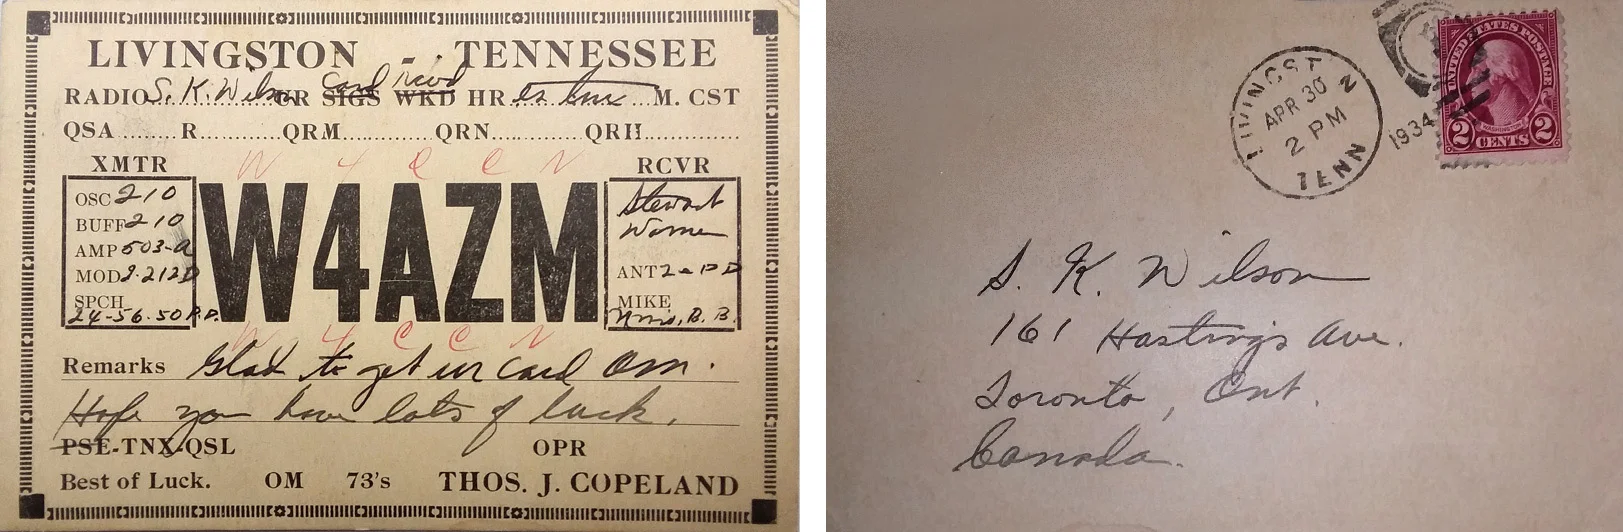 LIVINGSTON - TENNESSEE
RADIO S. K. Wilson UR SIGS WKD HR es hrs M. CST
Card recvd
QSA........R...........QRM.............QRN.............QRH...........
W 4 C C N
XMTR
RCVR
OSC 210
BUFF 210
AMP 503-a
MOD 2-212D
SPCH
24-56-50 P.P.
W4AZM
Stewart
Warner
ANT 2-PP
MIKE
B. B.
W 4 C C N
Remarks Glad to get ur card Om.
Hope you have lots of luck.
PSE-TNX-QSL OPR
Best of Luck. OM 73's THOS. J. COPELAND
LIVINGST
APR 30
2 PM
TENN
1934
UNITED STATES POSTAGE
WASHINGTON
2 CENTS 2
S. K. Wilson
161 Hastings Ave.
Toronto, Ont.
Canada.